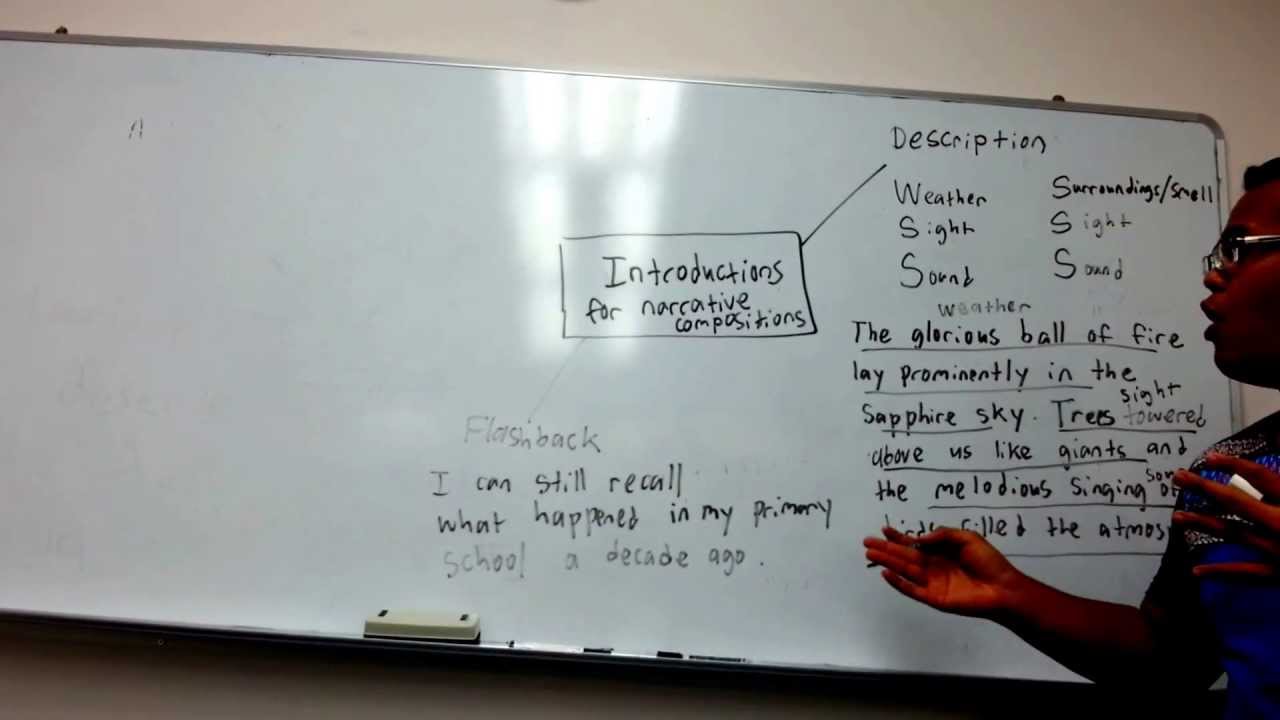 Description
Weather Surroundings/Smell
Sight Sight
Sound Sound
Introductions
for narrative
compositions
weather
The glorious ball of fire
lay prominently in the
sight
Sapphire sky. Trees towered
above us like giants and
the melodious singing
birds filled the
Flashback
I can still recall
what happened in my primary
school a decade ago.